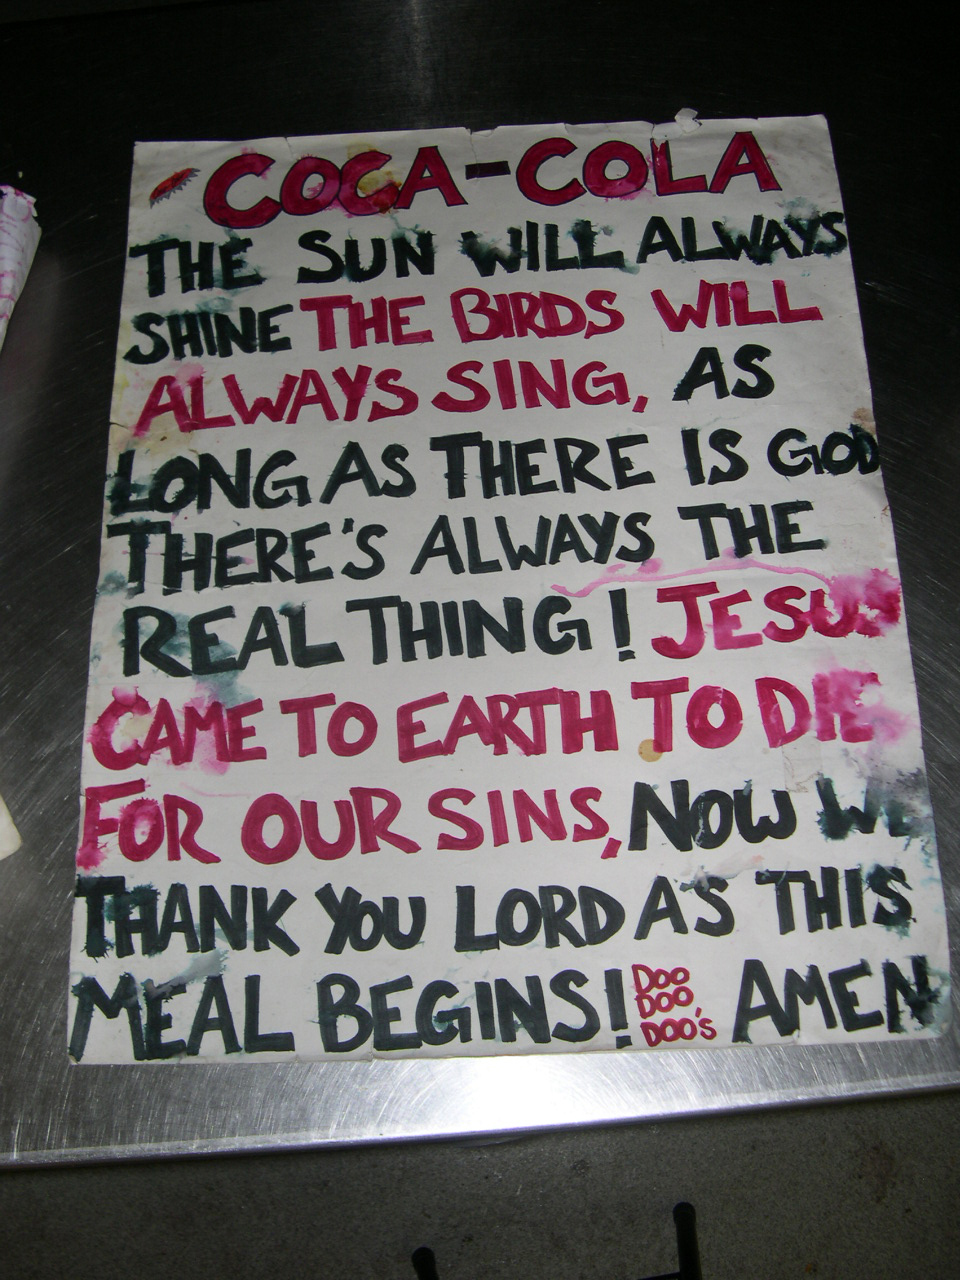 COCA-COLA
THE SUN WILL ALWAYS
SHINE THE BIRDS WILL
ALWAYS SING, AS
LONG AS THERE IS GOD
THERE'S ALWAYS THE
REAL THING! JESUS
CAME TO EARTH TO DIE
FOR OUR SINS, NOW WE
THANK YOU LORD AS THIS
MEAL BEGINS! DOO DOO DOO'S AMEN